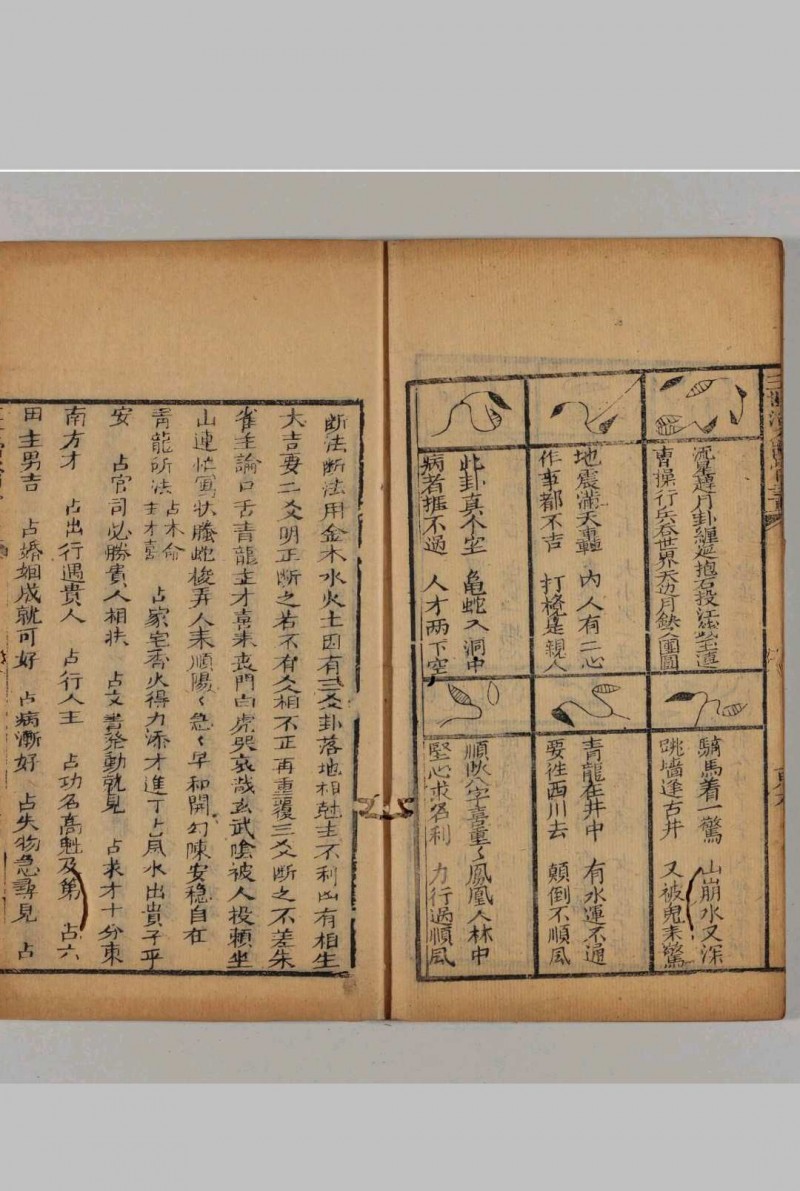 流星趕月卦纏延抱石投江
曹操行兵吞世界天边月缺人團圓
地震滿天轟 内人有二心
作事都不吉 打檯是親人
此卦真个空 亀蛇入洞中
病者推不過 人才两下空
騎馬着一驚 山崩水又深
跳墻逢古井 又被鬼来驚
青龍在井中 有水運不通
要往西川去 顛倒不順風
順吹八字喜重〻鳳凰入林中
堅心求名利 力行過順風
断法断法用金木水火土因有三爻卦落地相尅主不利凶有相生
大吉要二爻明正断之若不有爻相不正再重覆三爻断之不差朱
雀主論口舌青龍主才喜来丧門白虎哭哀哉玄武陰被人投頼坐
山連忙寫状螣蛇梭弄人来順陽〻急〻早和開勾陳安穏自在
青龍所法 占木命主才喜 占家宅香火得力添才進丁占風水出貴子乎
安 占官司必勝貴人相扶 占文書発動就見 占求才十分東
南方才 占出行遇貴人 占行人王 占功名高魁及第 占六
田主男吉 占婚姻成就可好 占病漸好 占失物急尋見 占